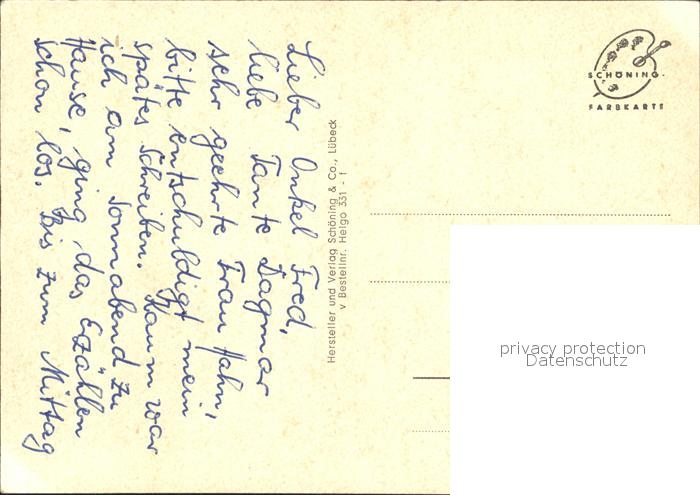 Lieber Onkel Fred,
liebe Tante Dagmar
sehr geehrte Frau Hahn,
bitte entschuldigt mein
spätes Schreiben. Kaum war
ich am Sonnabend zu
Hause, ging das Erzählen
schon los. Bis zum Mittag
Hersteller und Verlag Schöning & Co., Lübeck
v Bestellnr. Helgo 331 - f
SCHÖNING
FARBKARTE
privacy protection
Datenschutz